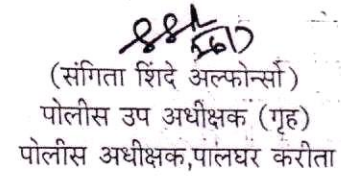 (संगिता शिंदे अल्फोन्सो)
पोलीस उप अधीक्षक (गृह)
पोलीस अधीक्षक,पालघर करीता